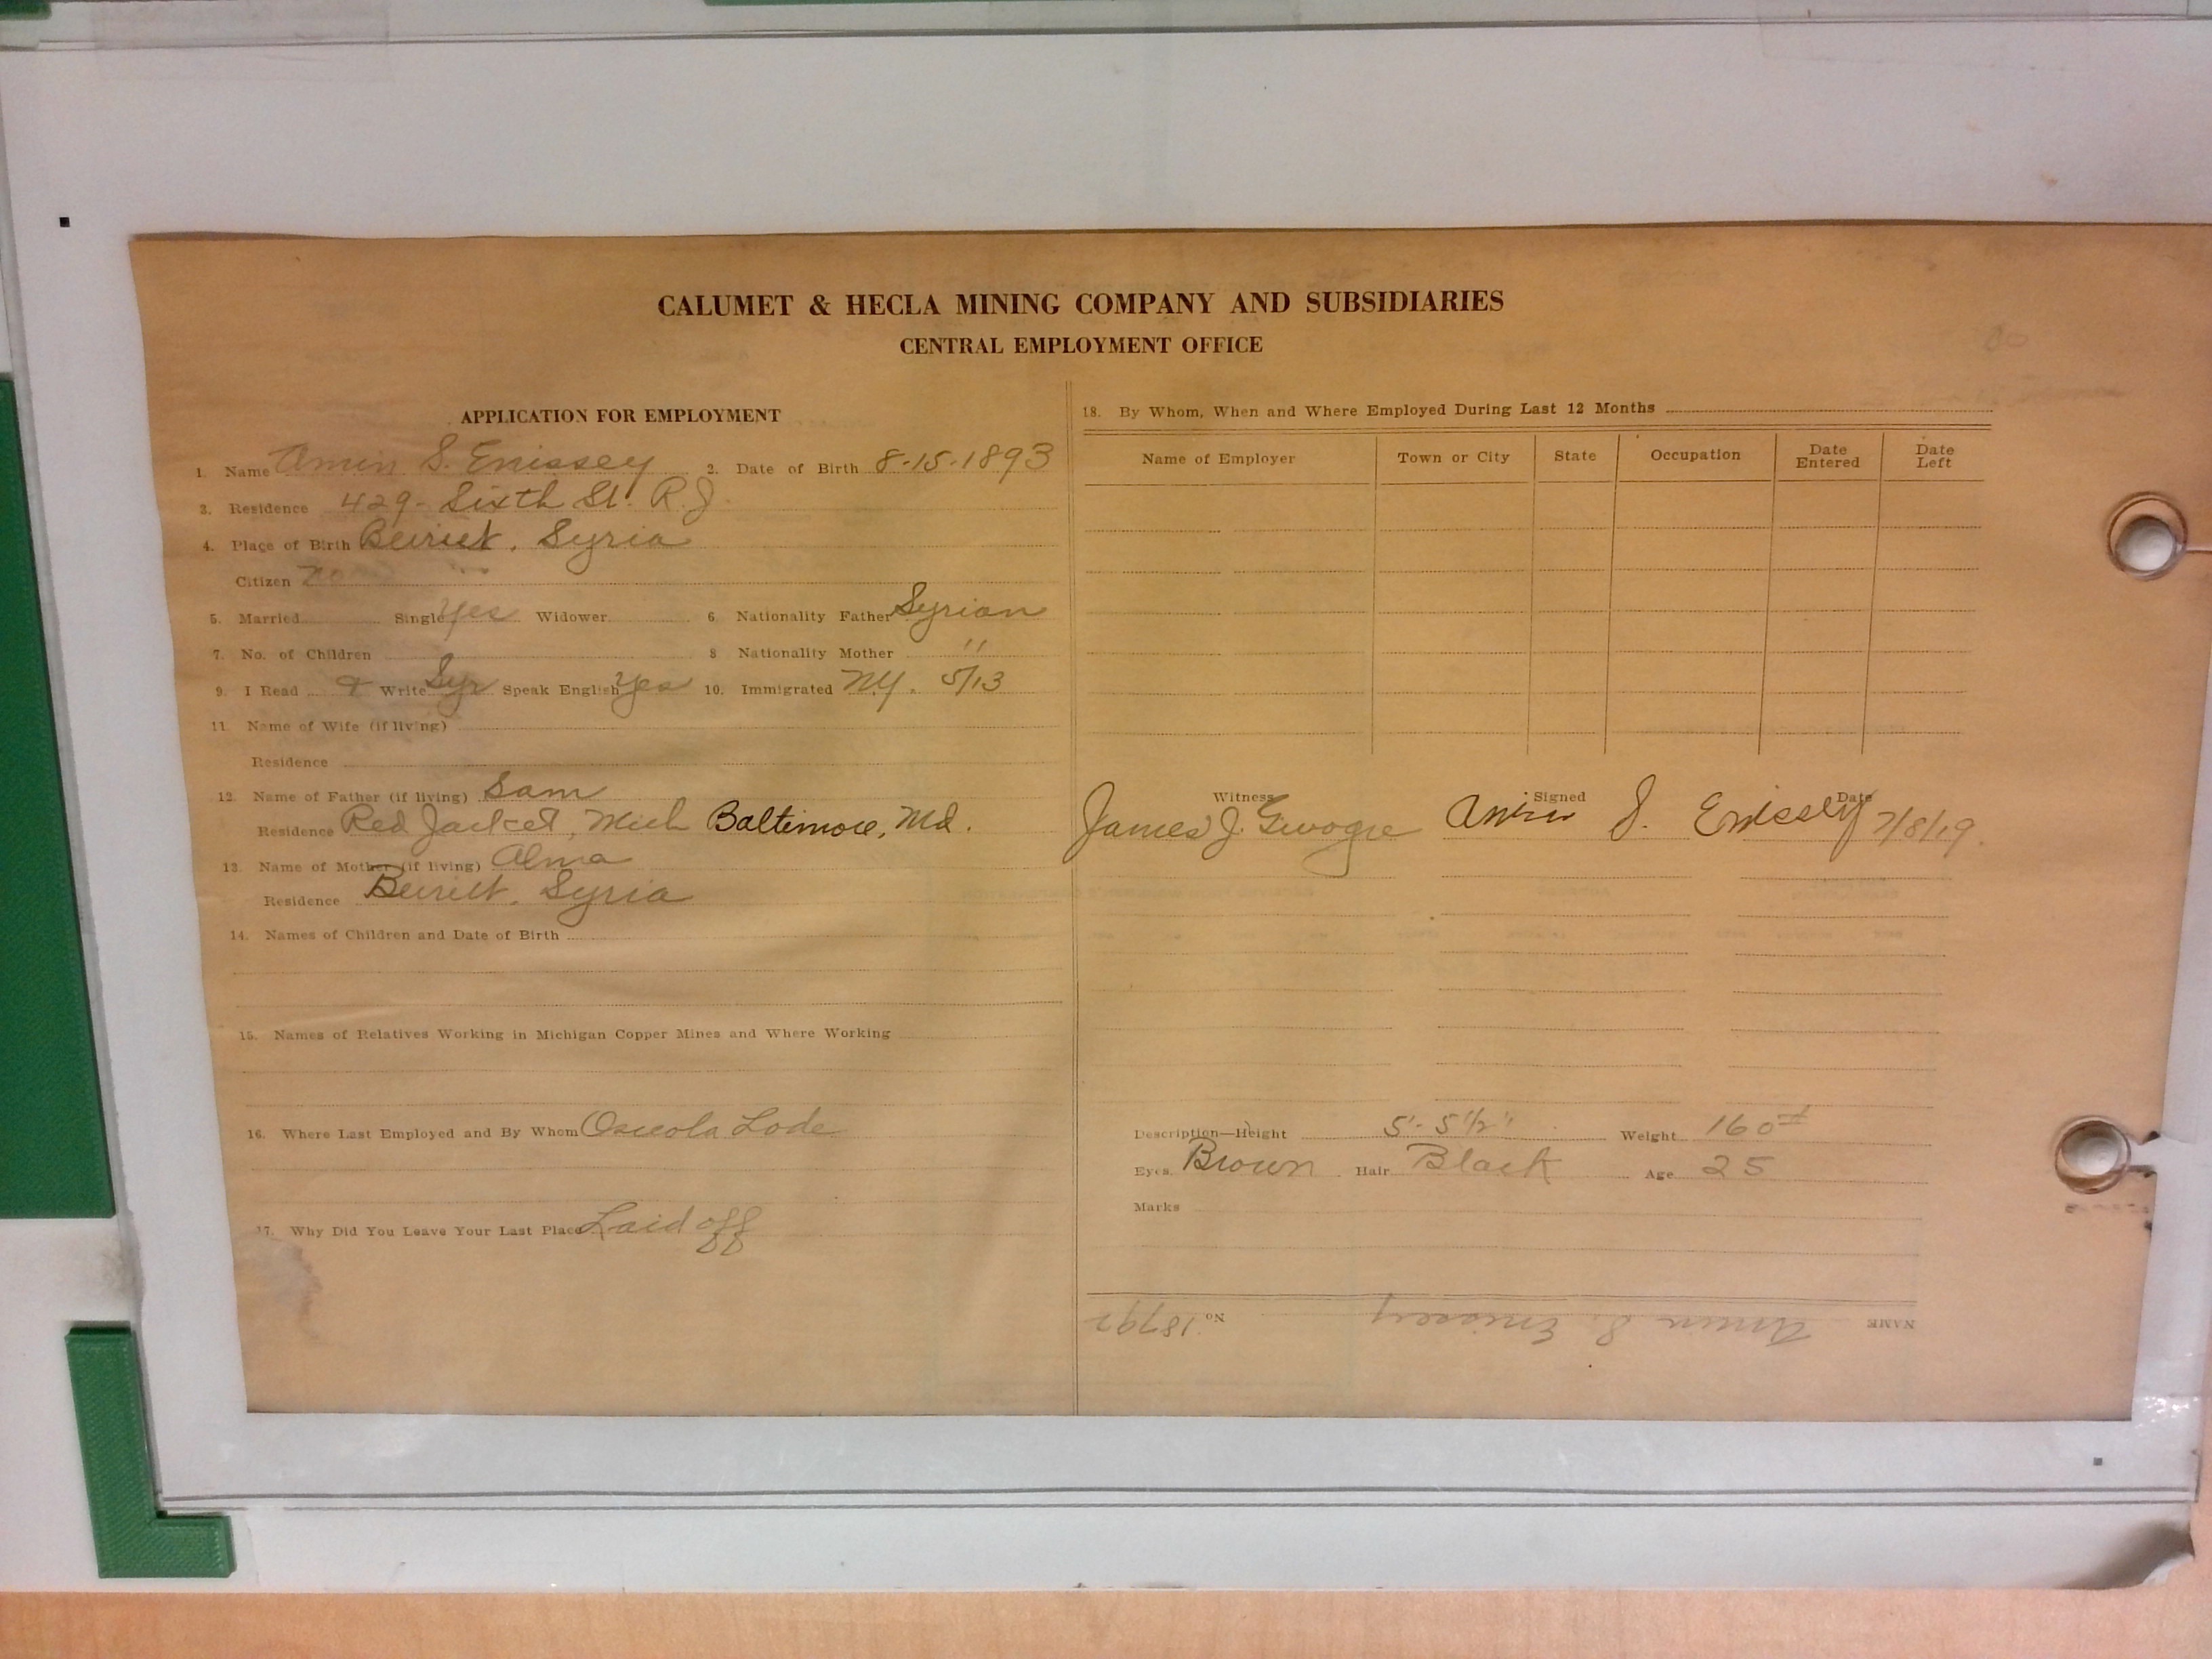 CALUMET & HECLA MINING COMPANY AND SUBSIDIARIES
CENTRAL EMPLOYMENT OFFICE
APPLICATION FOR EMPLOYMENT
1. Name Amin S. Enissey 2. Date of Birth 8-15-1893
3. Residence 429- Sixth St. R.J.
4. Place of Birth Beirut, Syria
Citizen No
5. Married Single Yes Widower 6. Nationality Father Syrian
7. No. of Children 8 Nationality Mother "
9. I Read & Write Syr Speak English Yes 10. Immigrated N.Y. 5/13
11. Name of Wife (if living)
Residence
12. Name of Father (if living) Sam
Residence Red Jacket, Mich Baltimore, Md.
13. Name of Mother (if living) Alma
Residence Beirut, Syria
14. Names of Children and Date of Birth
15. Names of Relatives Working in Michigan Copper Mines and Where Working
16. Where Last Employed and By Whom Osceola Lode
17. Why Did You Leave Your Last Place Laid off
18. By Whom, When and Where Employed During Last 12 Months
Name of Employer Town or City State Occupation Date Entered Date Left
Witness Signed Date
James J. Amin S. Enissey 7/8/19.
Description—Height 5'- 5 1/2" Weight 160#
Eyes Brown Hair Black Age 25
Marks
NAME Amin S. Enissey No. 18792